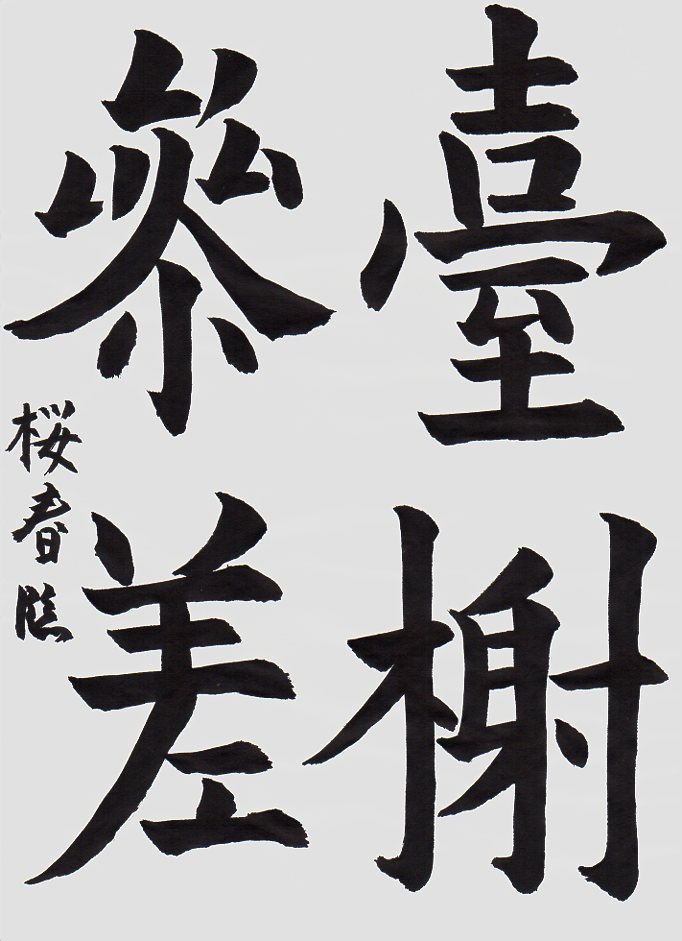 臺榭
參差
桜春臨